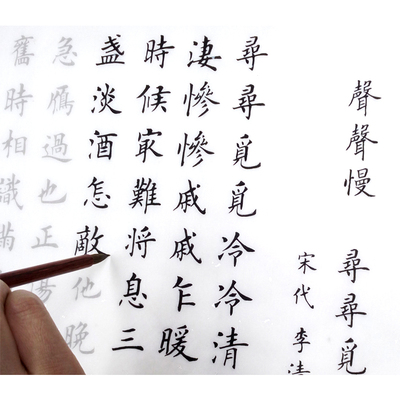 聲聲慢 尋尋覓
宋代 李清
尋尋覓覓冷冷清
淒慘慘戚戚乍暖
時候㝡難将息三
盞淡酒怎敵他晚
急鴈過也正傷
舊時相識滿